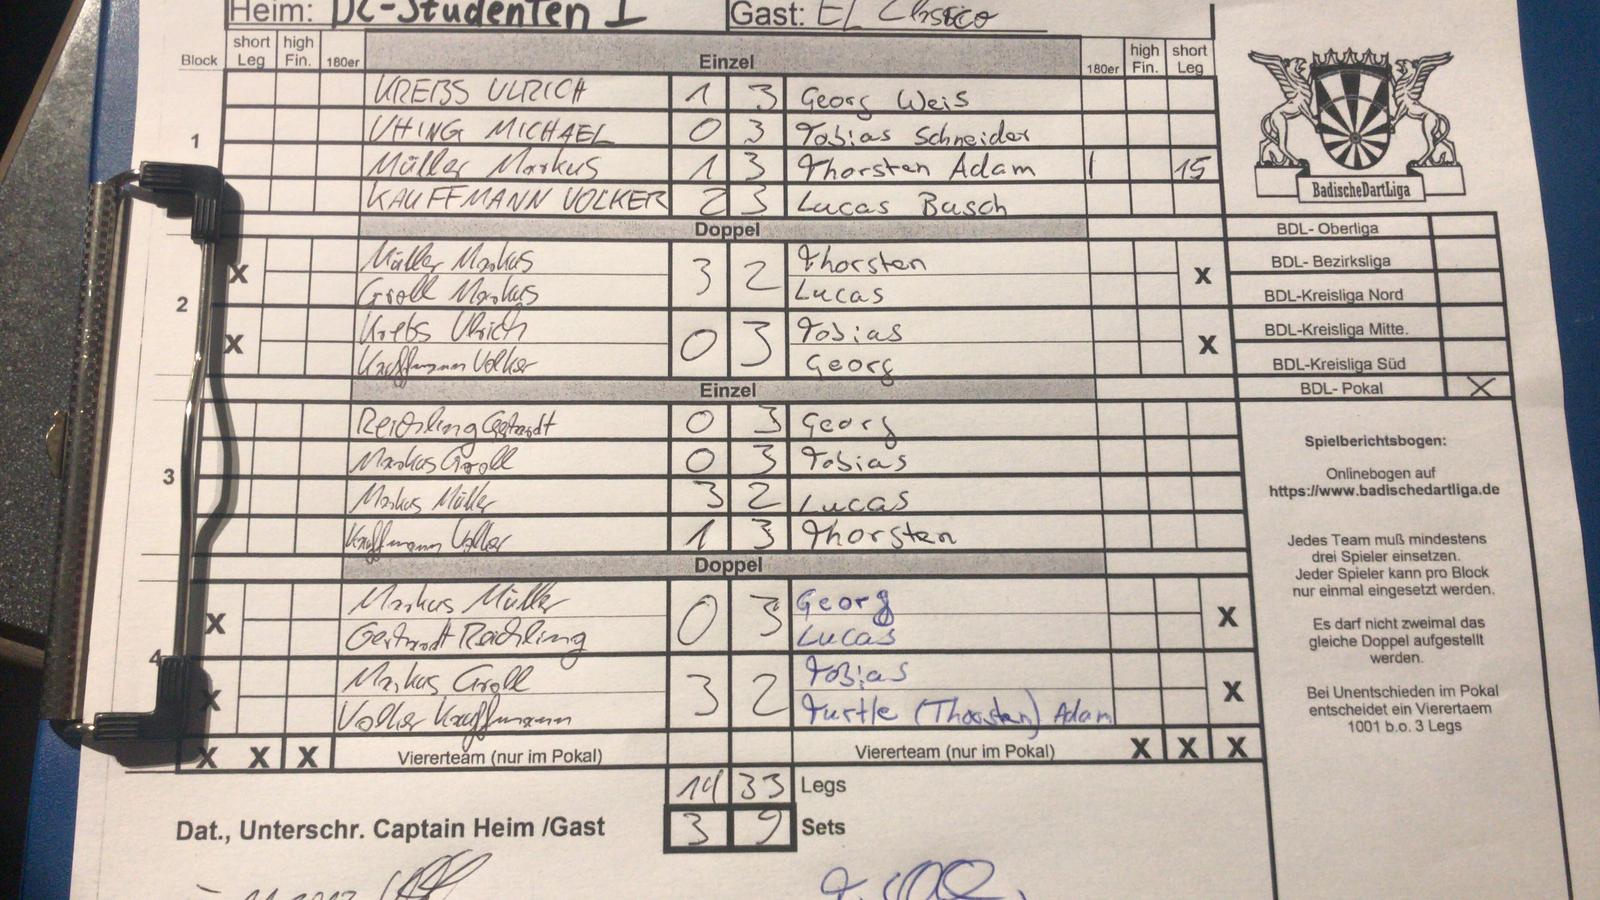 Heim: DC-Studenten 1 Gast: El Clasico
Block short Leg high Fin. 180er Einzel 180er high Fin. short Leg
1
KREBS ULRICH 1 3 Georg Weis
UHING MICHAEL 0 3 Tobias Schneider
Müller Markus 1 3 Thorsten Adam | 15
KAUFFMANN VOLKER 2 3 Lucas Busch
Doppel
2
X Müller Markus 3 2 Thorsten X
Groll Markus Lucas
X Krebs Ulrich 0 3 Tobias X
Kauffmann Volker Georg
Einzel
3
Reichling Gerhardt 0 3 Georg
Markus Groll 0 3 Tobias
Markus Müller 3 2 Lucas
Kauffmann Volker 1 3 Thorsten
Doppel
4
X Markus Müller 0 3 Georg X
Gerhardt Reichling Lucas
X Markus Groll 3 2 Tobias X
Volker Kauffmann Turtle (Thorsten) Adam
X X X Viererteam (nur im Pokal) Viererteam (nur im Pokal) X X X
14 33 Legs
Dat., Unterschr. Captain Heim /Gast 3 9 Sets
BadischeDartLiga
BDL- Oberliga
BDL- Bezirksliga
BDL-Kreisliga Nord
BDL-Kreisliga Mitte.
BDL-Kreisliga Süd
BDL- Pokal X
Spielberichtsbogen:
Onlinebogen auf
https://www.badischedartliga.de
Jedes Team muß mindestens
drei Spieler einsetzen.
Jeder Spieler kann pro Block
nur einmal eingesetzt werden.
Es darf nicht zweimal das
gleiche Doppel aufgestellt
werden.
Bei Unentschieden im Pokal
entscheidet ein Vierertaem
1001 b.o. 3 Legs